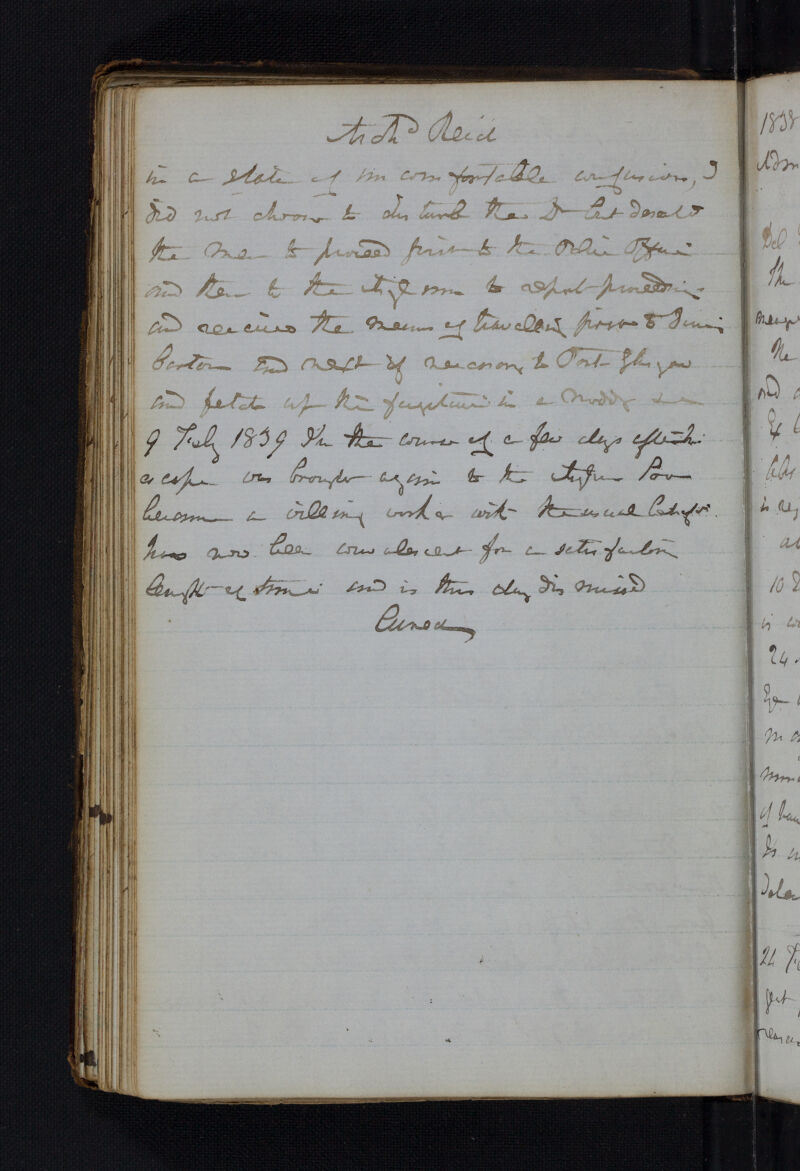 Archd Reid
in a state of uncomfortable confusion, I
did not choose to disturb the Dr but desired
the men to proceed first to the Police Office
and then to the Asylum to report proceedings
and receive the means of travelling first to Dum
barton and next if necessary to Port Glasgow
and fetch up the fugitive in a Noddy
9 July 1839 In the course of a few days after his
escape was brought again to the Asylum Soon
became a willing worker with the usual benefit.
has now been convalescent for a satisfactory
length of time and is this day dismissed
Cured
1838
Adm
Del
The
He
and
is
10
24
in
of
24